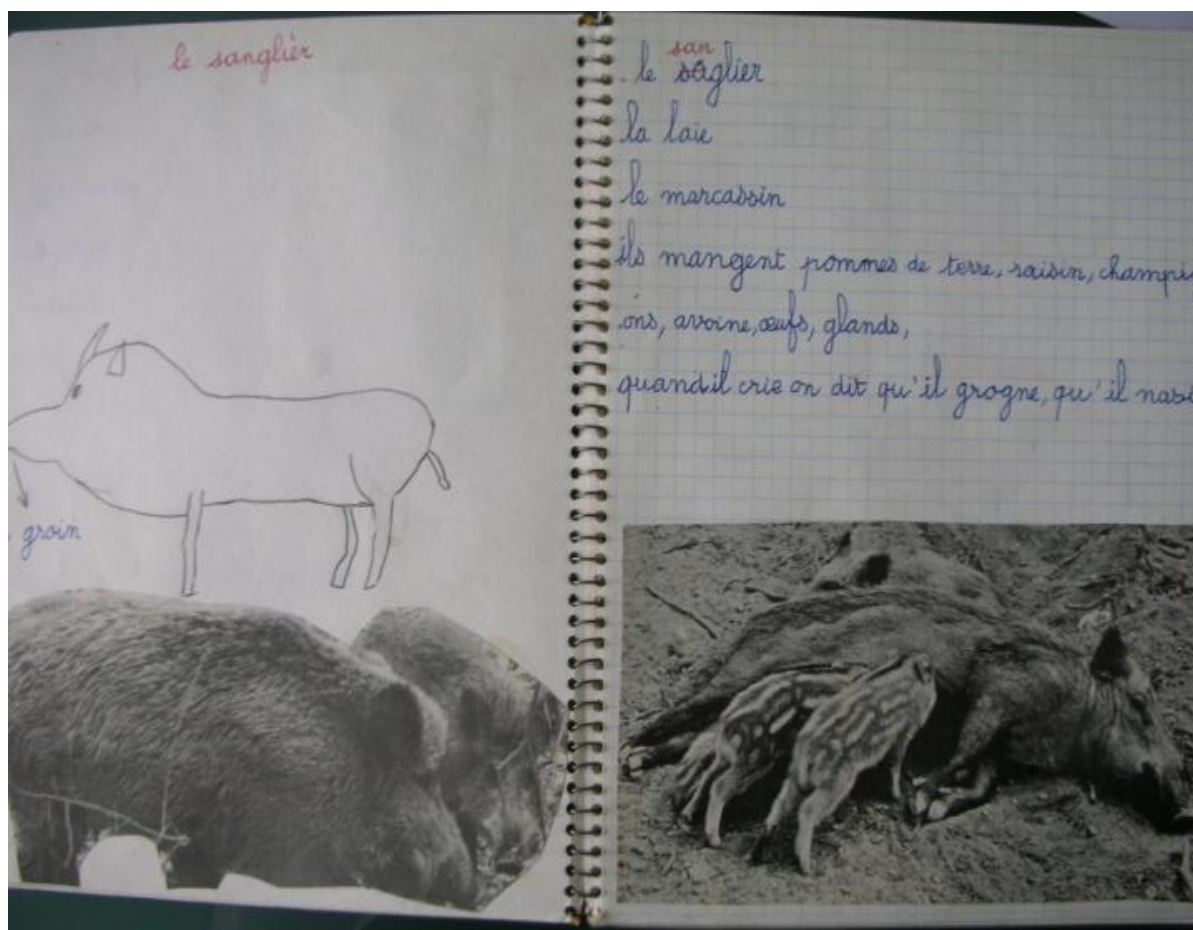 le sanglier
groin
san
le saglier
la laie
le marcassin
ils mangent pommes de terre, raisin, champi
ons, avoine, œufs, glands,
quand il crie on dit qu'il grogne, qu'il nasi